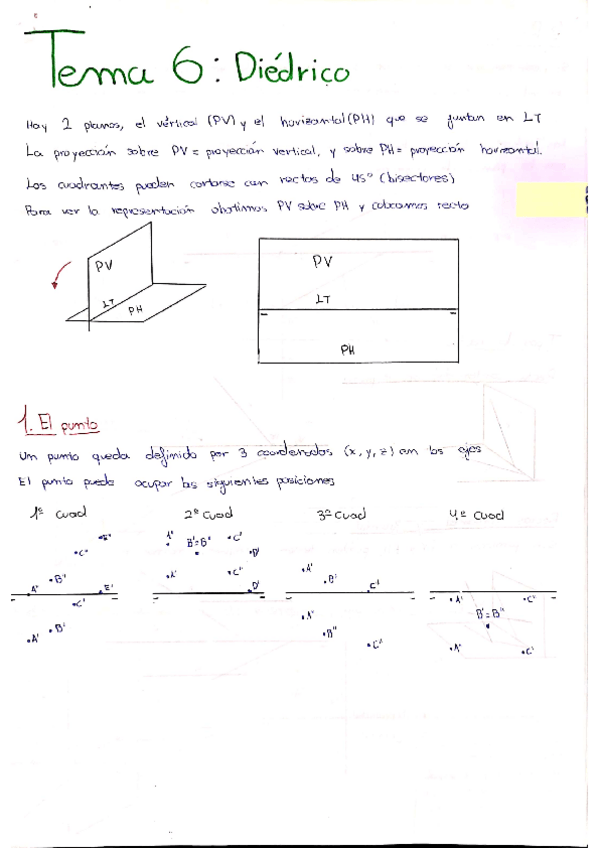 Tema 6: Diédrico
Hay 2 planos, el vértical (PV) y el horizontal (PH) que se juntan en LT
La proyección sobre PV = proyección vertical, y sobre PH = proyección horizontal.
Los cuadrantes pueden cortarse con rectas de 45º (bisectores)
Para ver la representución abatimos PV sobre PH y colocamos recto
PV
LT
PH
PV
LT
PH
1. El punto
Un punto queda definido por 3 coordenadas (x, y, z) con los ejes
El punto puede ocupar las siguientes posiciones
1º Cuad
2º Cuad
3º Cuad
4º Cuad
C"
B"
A"
E'
C'
B'
A'
A"
B'=B"
C'
D'
A'
C"
D'
A'
B'
C'
A"
B"
C"
A"
C"
B'=B"
A'
C'